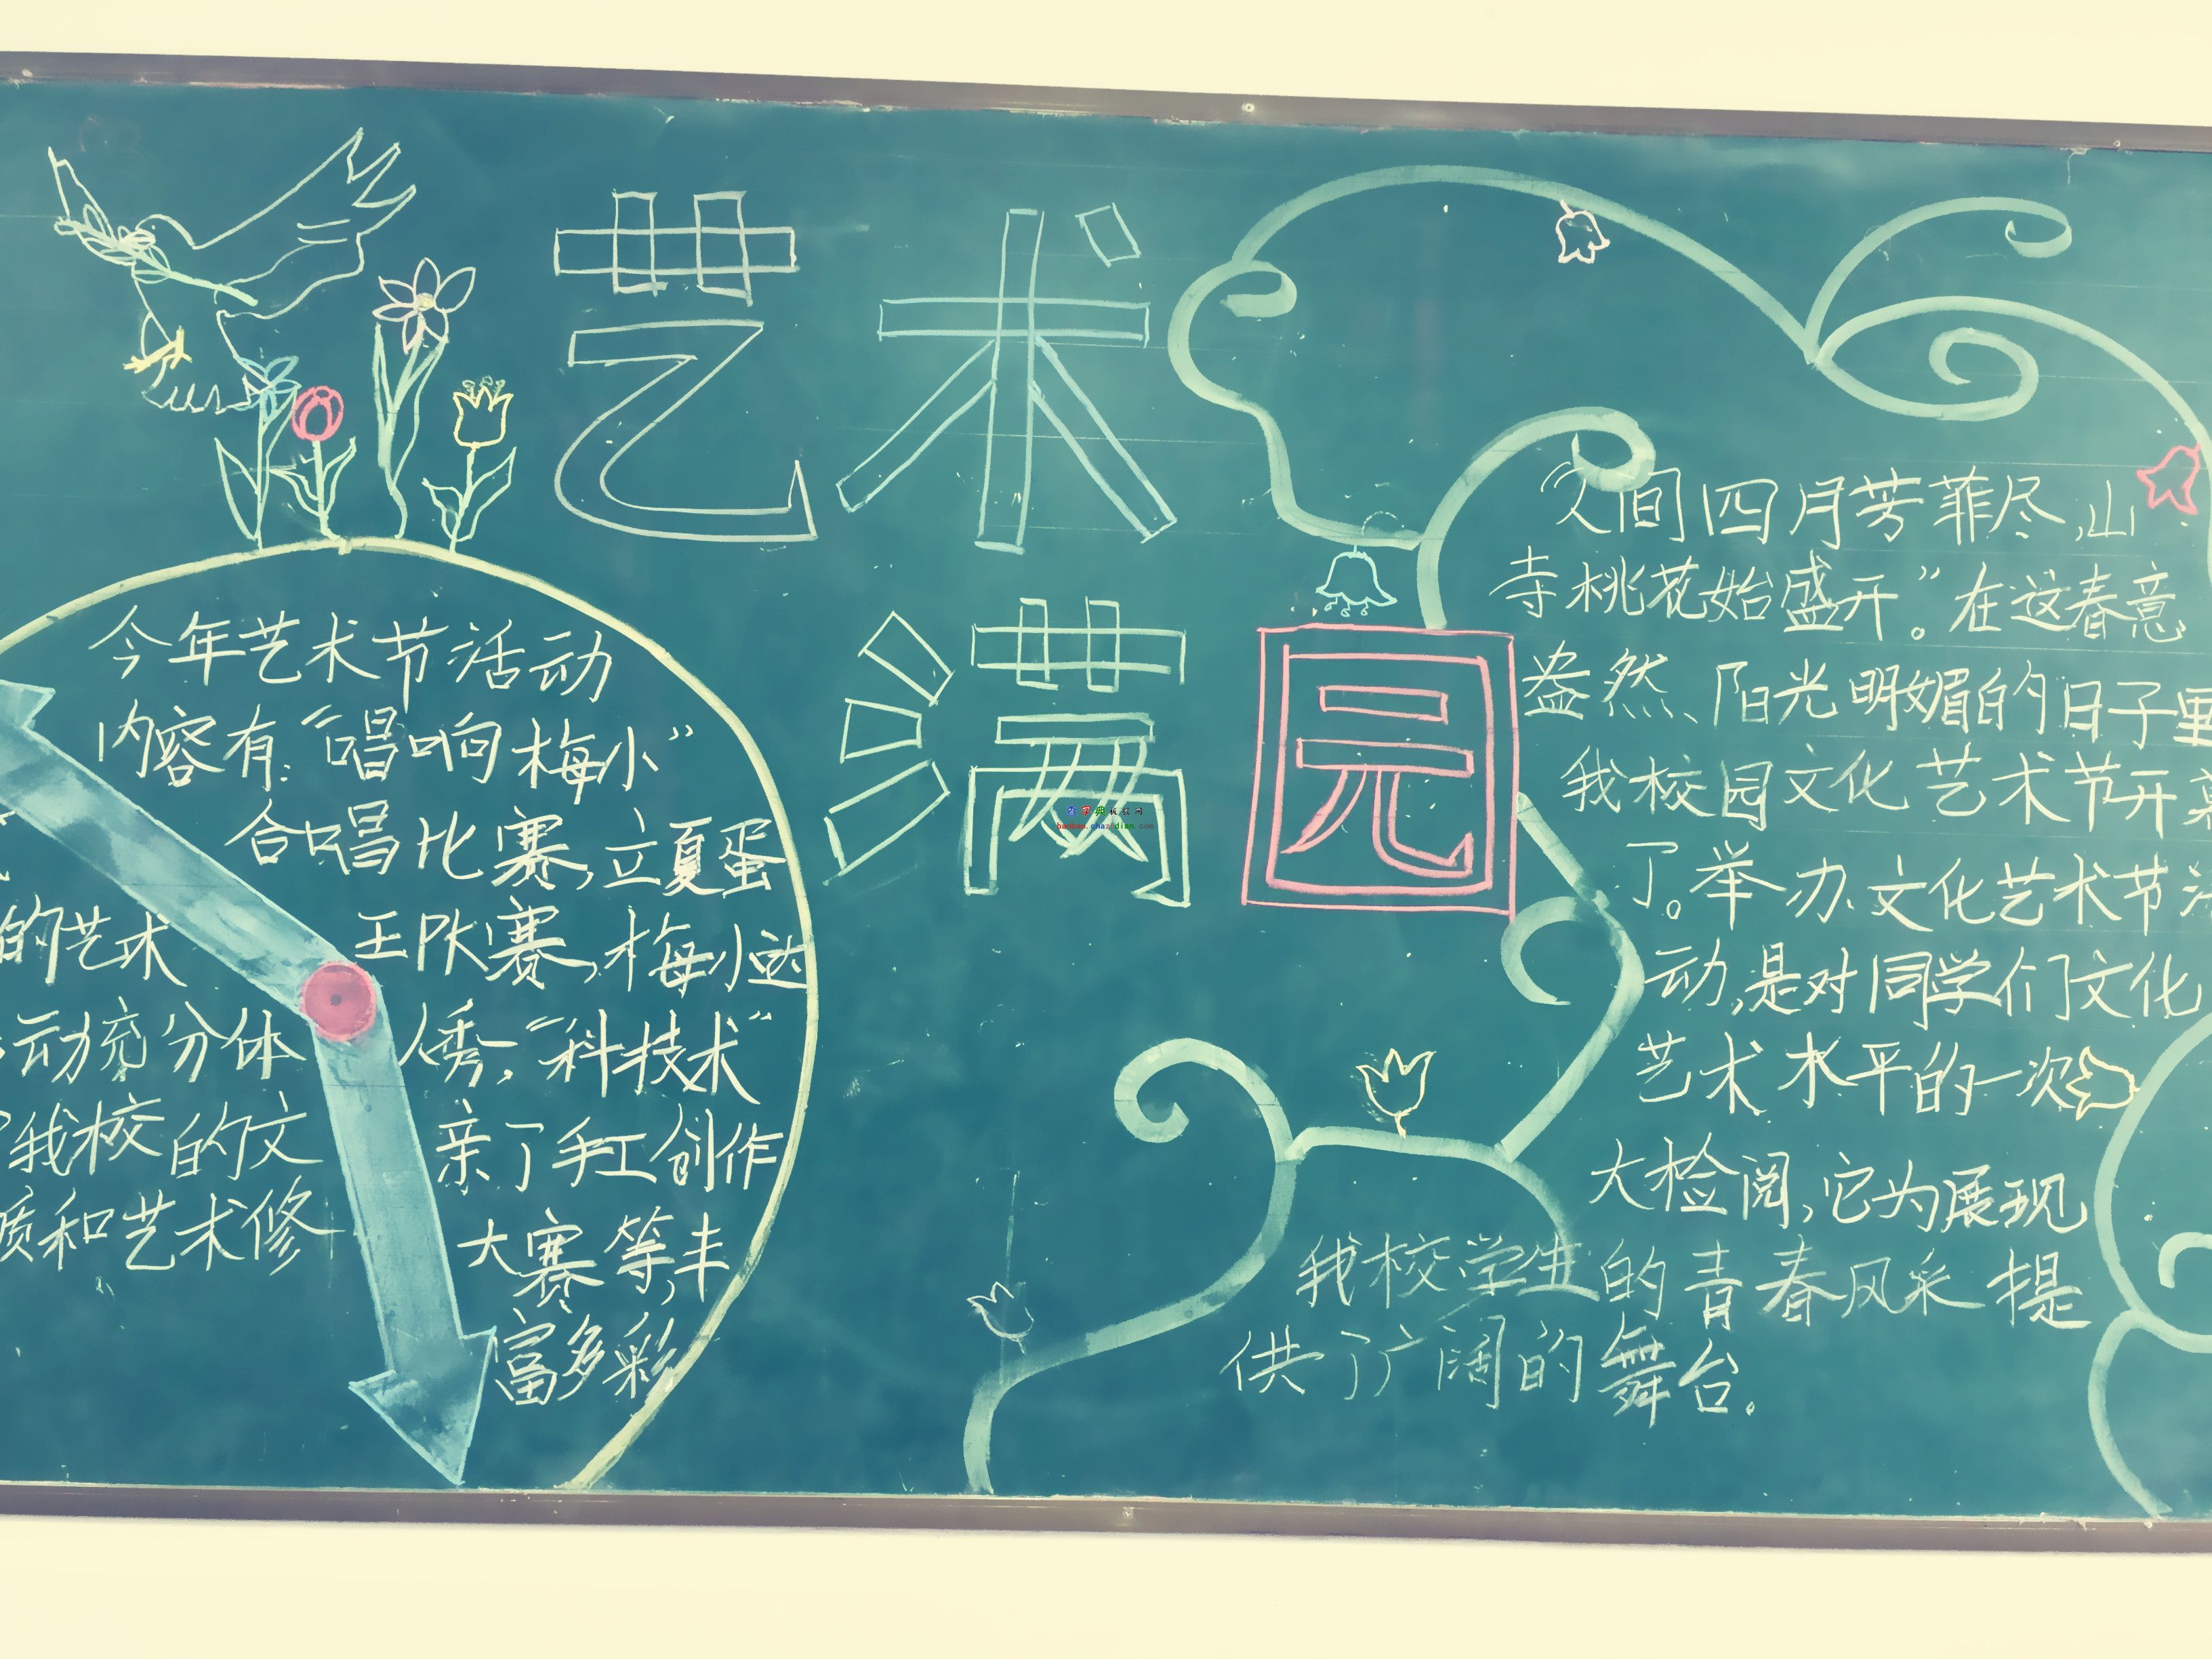 艺术
满园
今年艺术节活动
内容有:“唱响梅小”
合唱比赛,立夏蛋
王PK赛,梅小达
人秀,“科技术”
亲了手工创作
大赛等,丰
富多彩
的艺术
动充分体
我校的文
质和艺术修
“人间四月芳菲尽,山
寺桃花始盛开”。在这春意
盎然、阳光明媚的日子里
我校园文化艺术节开幕
了。举办文化艺术节活
动,是对同学们文化
艺术水平的一次
大检阅,它为展现
我校学生的青春风采提
供了广阔的舞台。